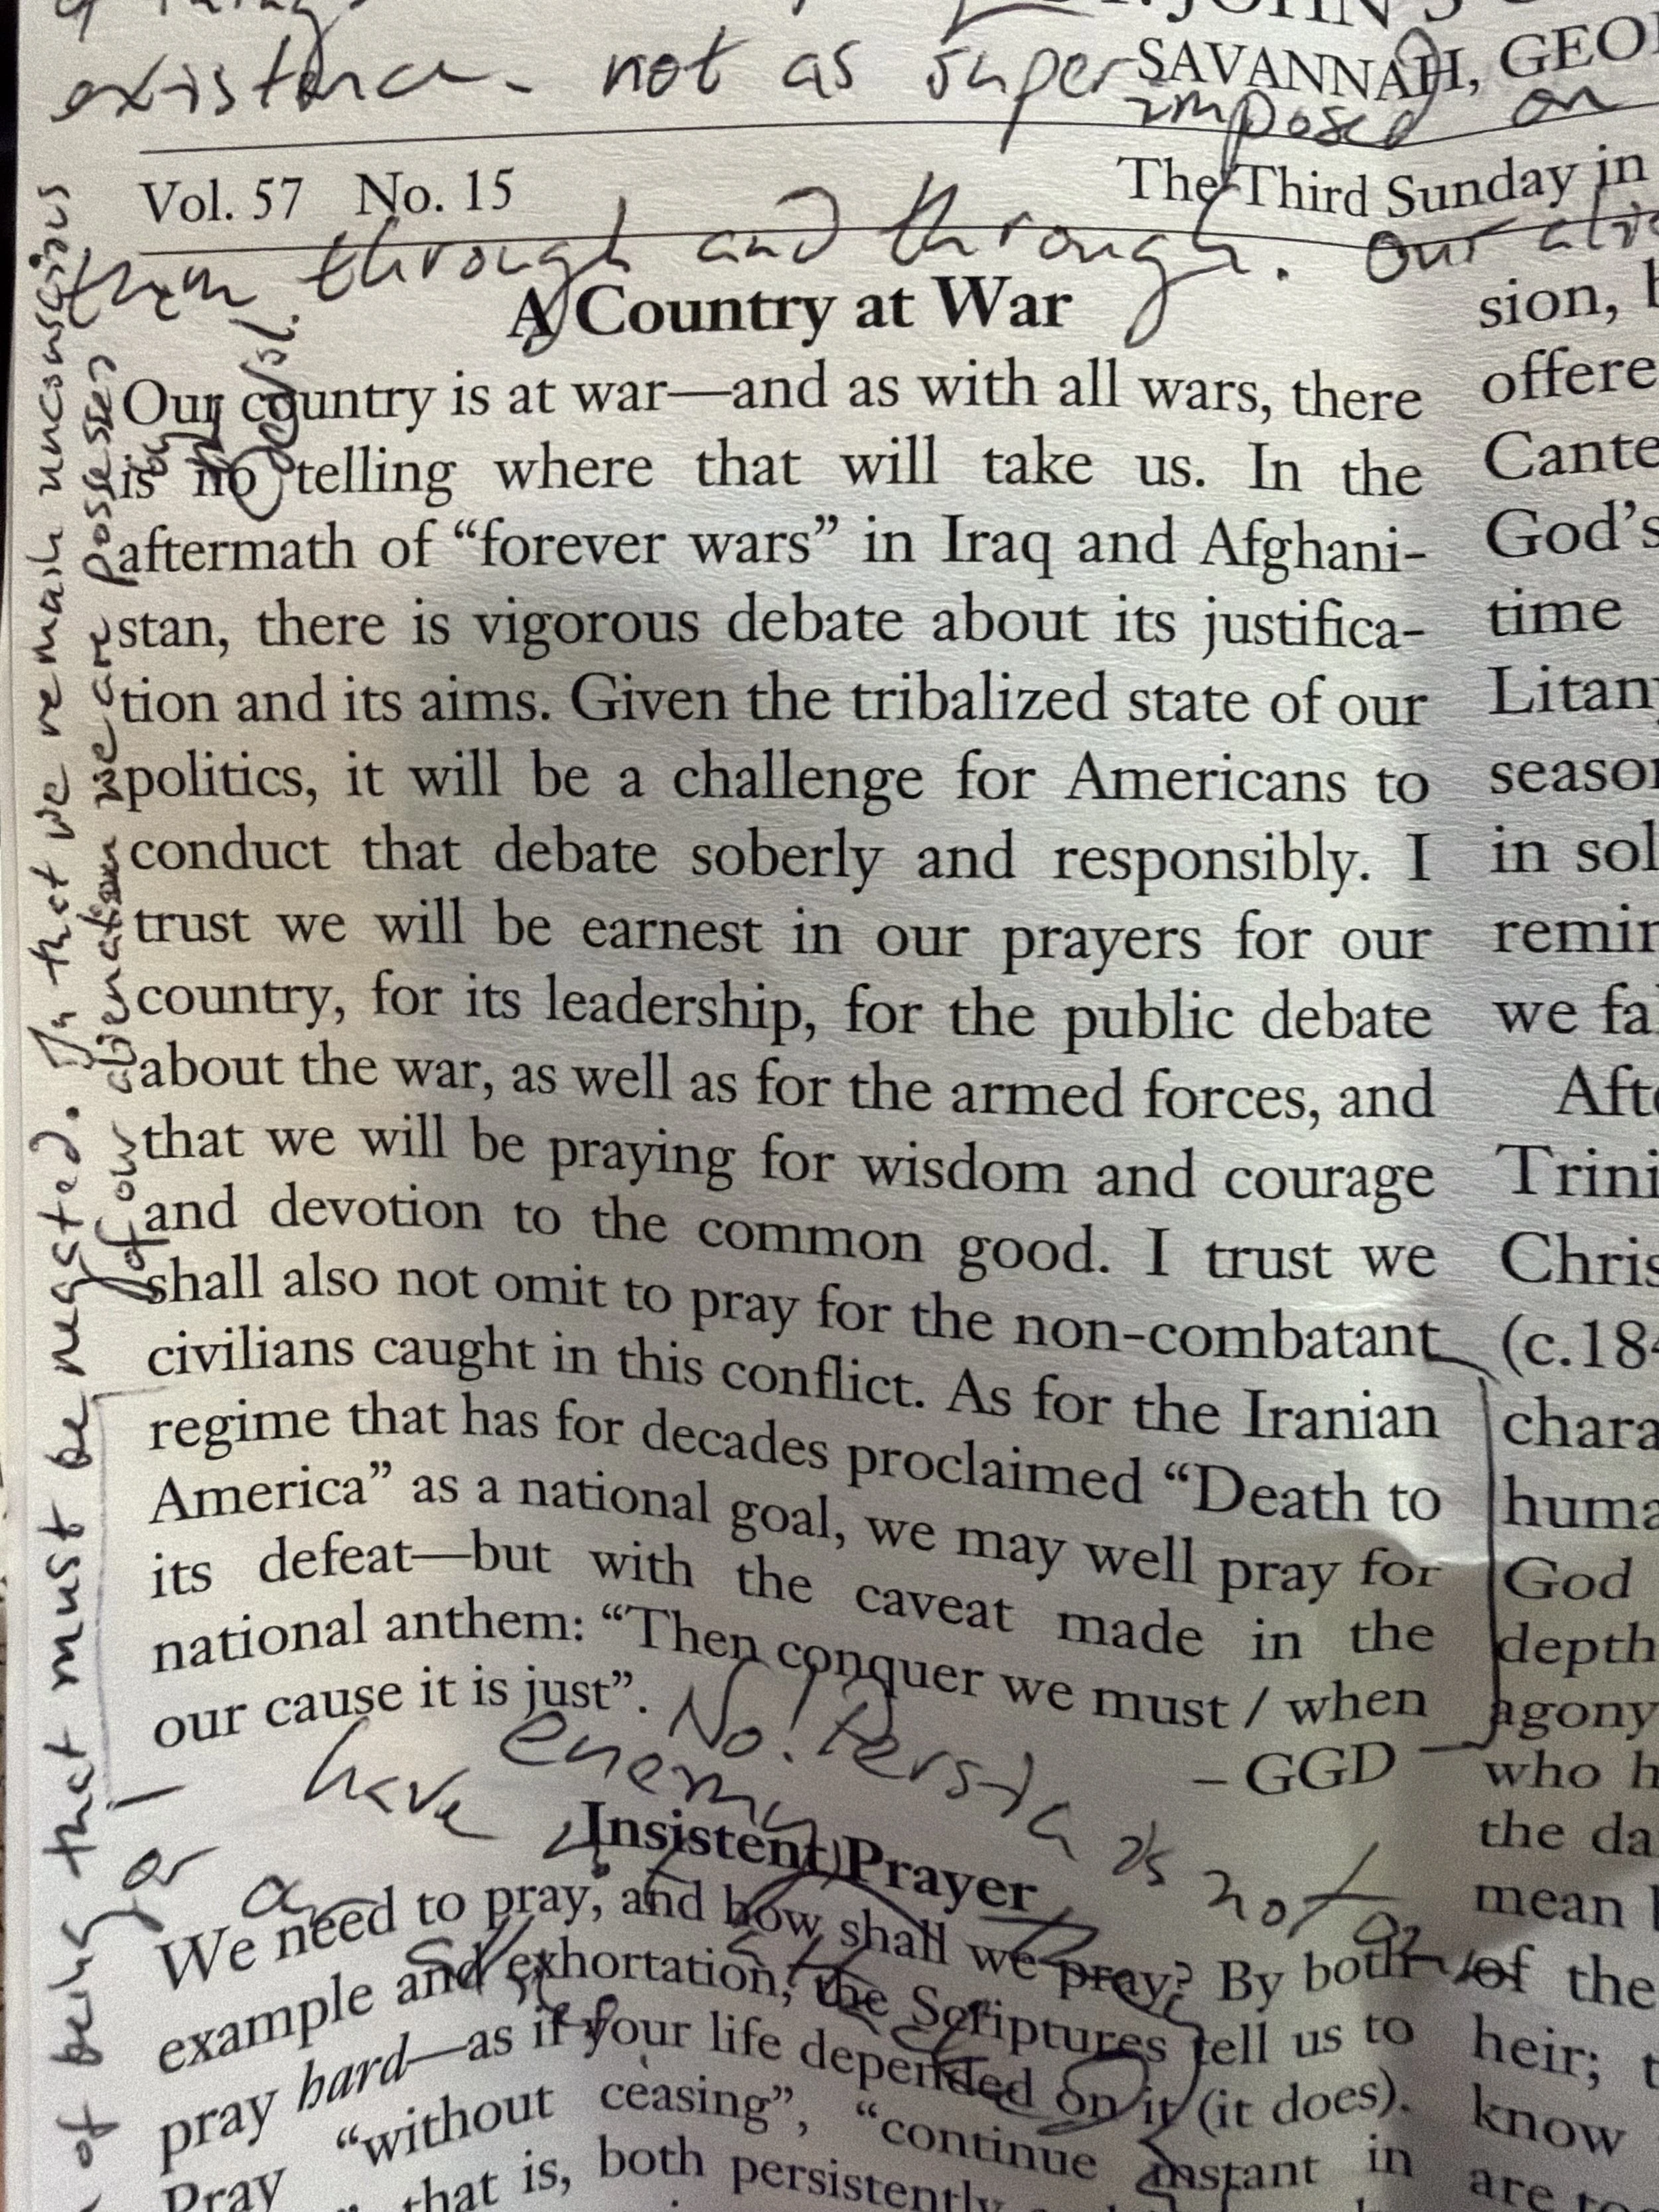 existence - not as super
imposed on
ST. JOHN'S
SAVANNAH, GEO
Vol. 57 No. 15
The Third Sunday in
them through and through. Our
A Country at War
Our country is at war—and as with all wars, there
is no telling where that will take us. In the
aftermath of “forever wars” in Iraq and Afghani-
stan, there is vigorous debate about its justifica-
tion and its aims. Given the tribalized state of our
politics, it will be a challenge for Americans to
conduct that debate soberly and responsibly. I
trust we will be earnest in our prayers for our
country, for its leadership, for the public debate
about the war, as well as for the armed forces, and
that we will be praying for wisdom and courage
and devotion to the common good. I trust we
shall also not omit to pray for the non-combatant
civilians caught in this conflict. As for the Iranian
regime that has for decades proclaimed “Death to
America” as a national goal, we may well pray for
its defeat—but with the caveat made in the
national anthem: “Then conquer we must / when
our cause it is just”.
– GGD
No! Persia is not an
enemy
have
or a
Insistent Prayer
We need to pray, and how shall we pray? By both
example and exhortation, the Scriptures tell us to
pray hard—as if your life depended on it (it does).
Pray “without ceasing”, “continue instant in
that is, both persistently
sion,
offere
Cante
God’s
time
Litany
season
in sol
remin
we fa
Afte
Trini
Chris
(c.184
chara
huma
God
depth
agony
who h
the da
mean
of the
heir;
know
are to
of being that must be negated. In that we remain unconscious
of our alienation we are possessed
by the devil.